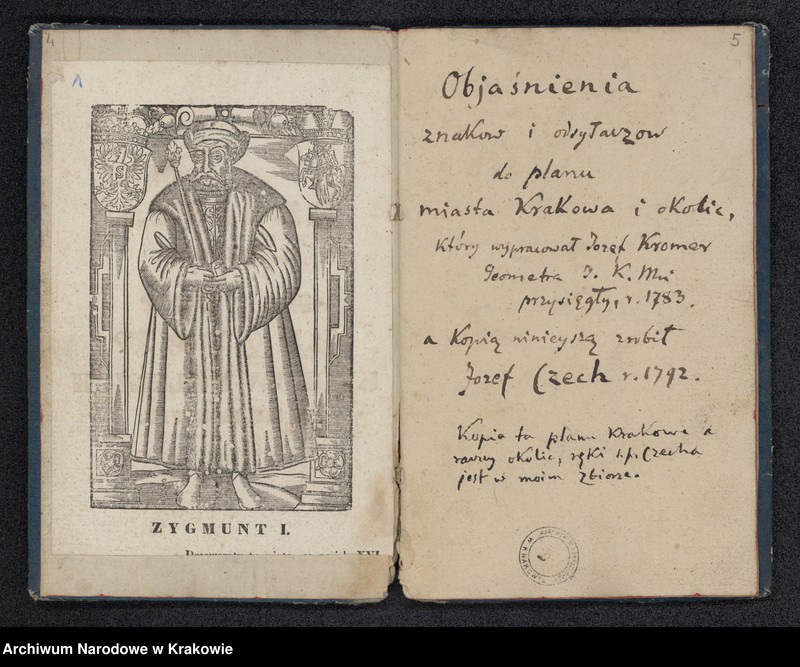 4
1
ZYGMUNT I.
XVI
5
Objaśnienia
znakow i odsyłaczow
do planu
miasta Krakowa i okolic,
który wypracował Jozef Kromer
Geometra J. K. Mci
przysięgły, r. 1783.
a Kopią ninieyszą zrobił
Jozef Czech r. 1792.
Kopia ta planu Krakowa a
okolic, ręki s.p. Czecha
jest w moim zbiorze.
Archiwum Narodowe w Krakowie